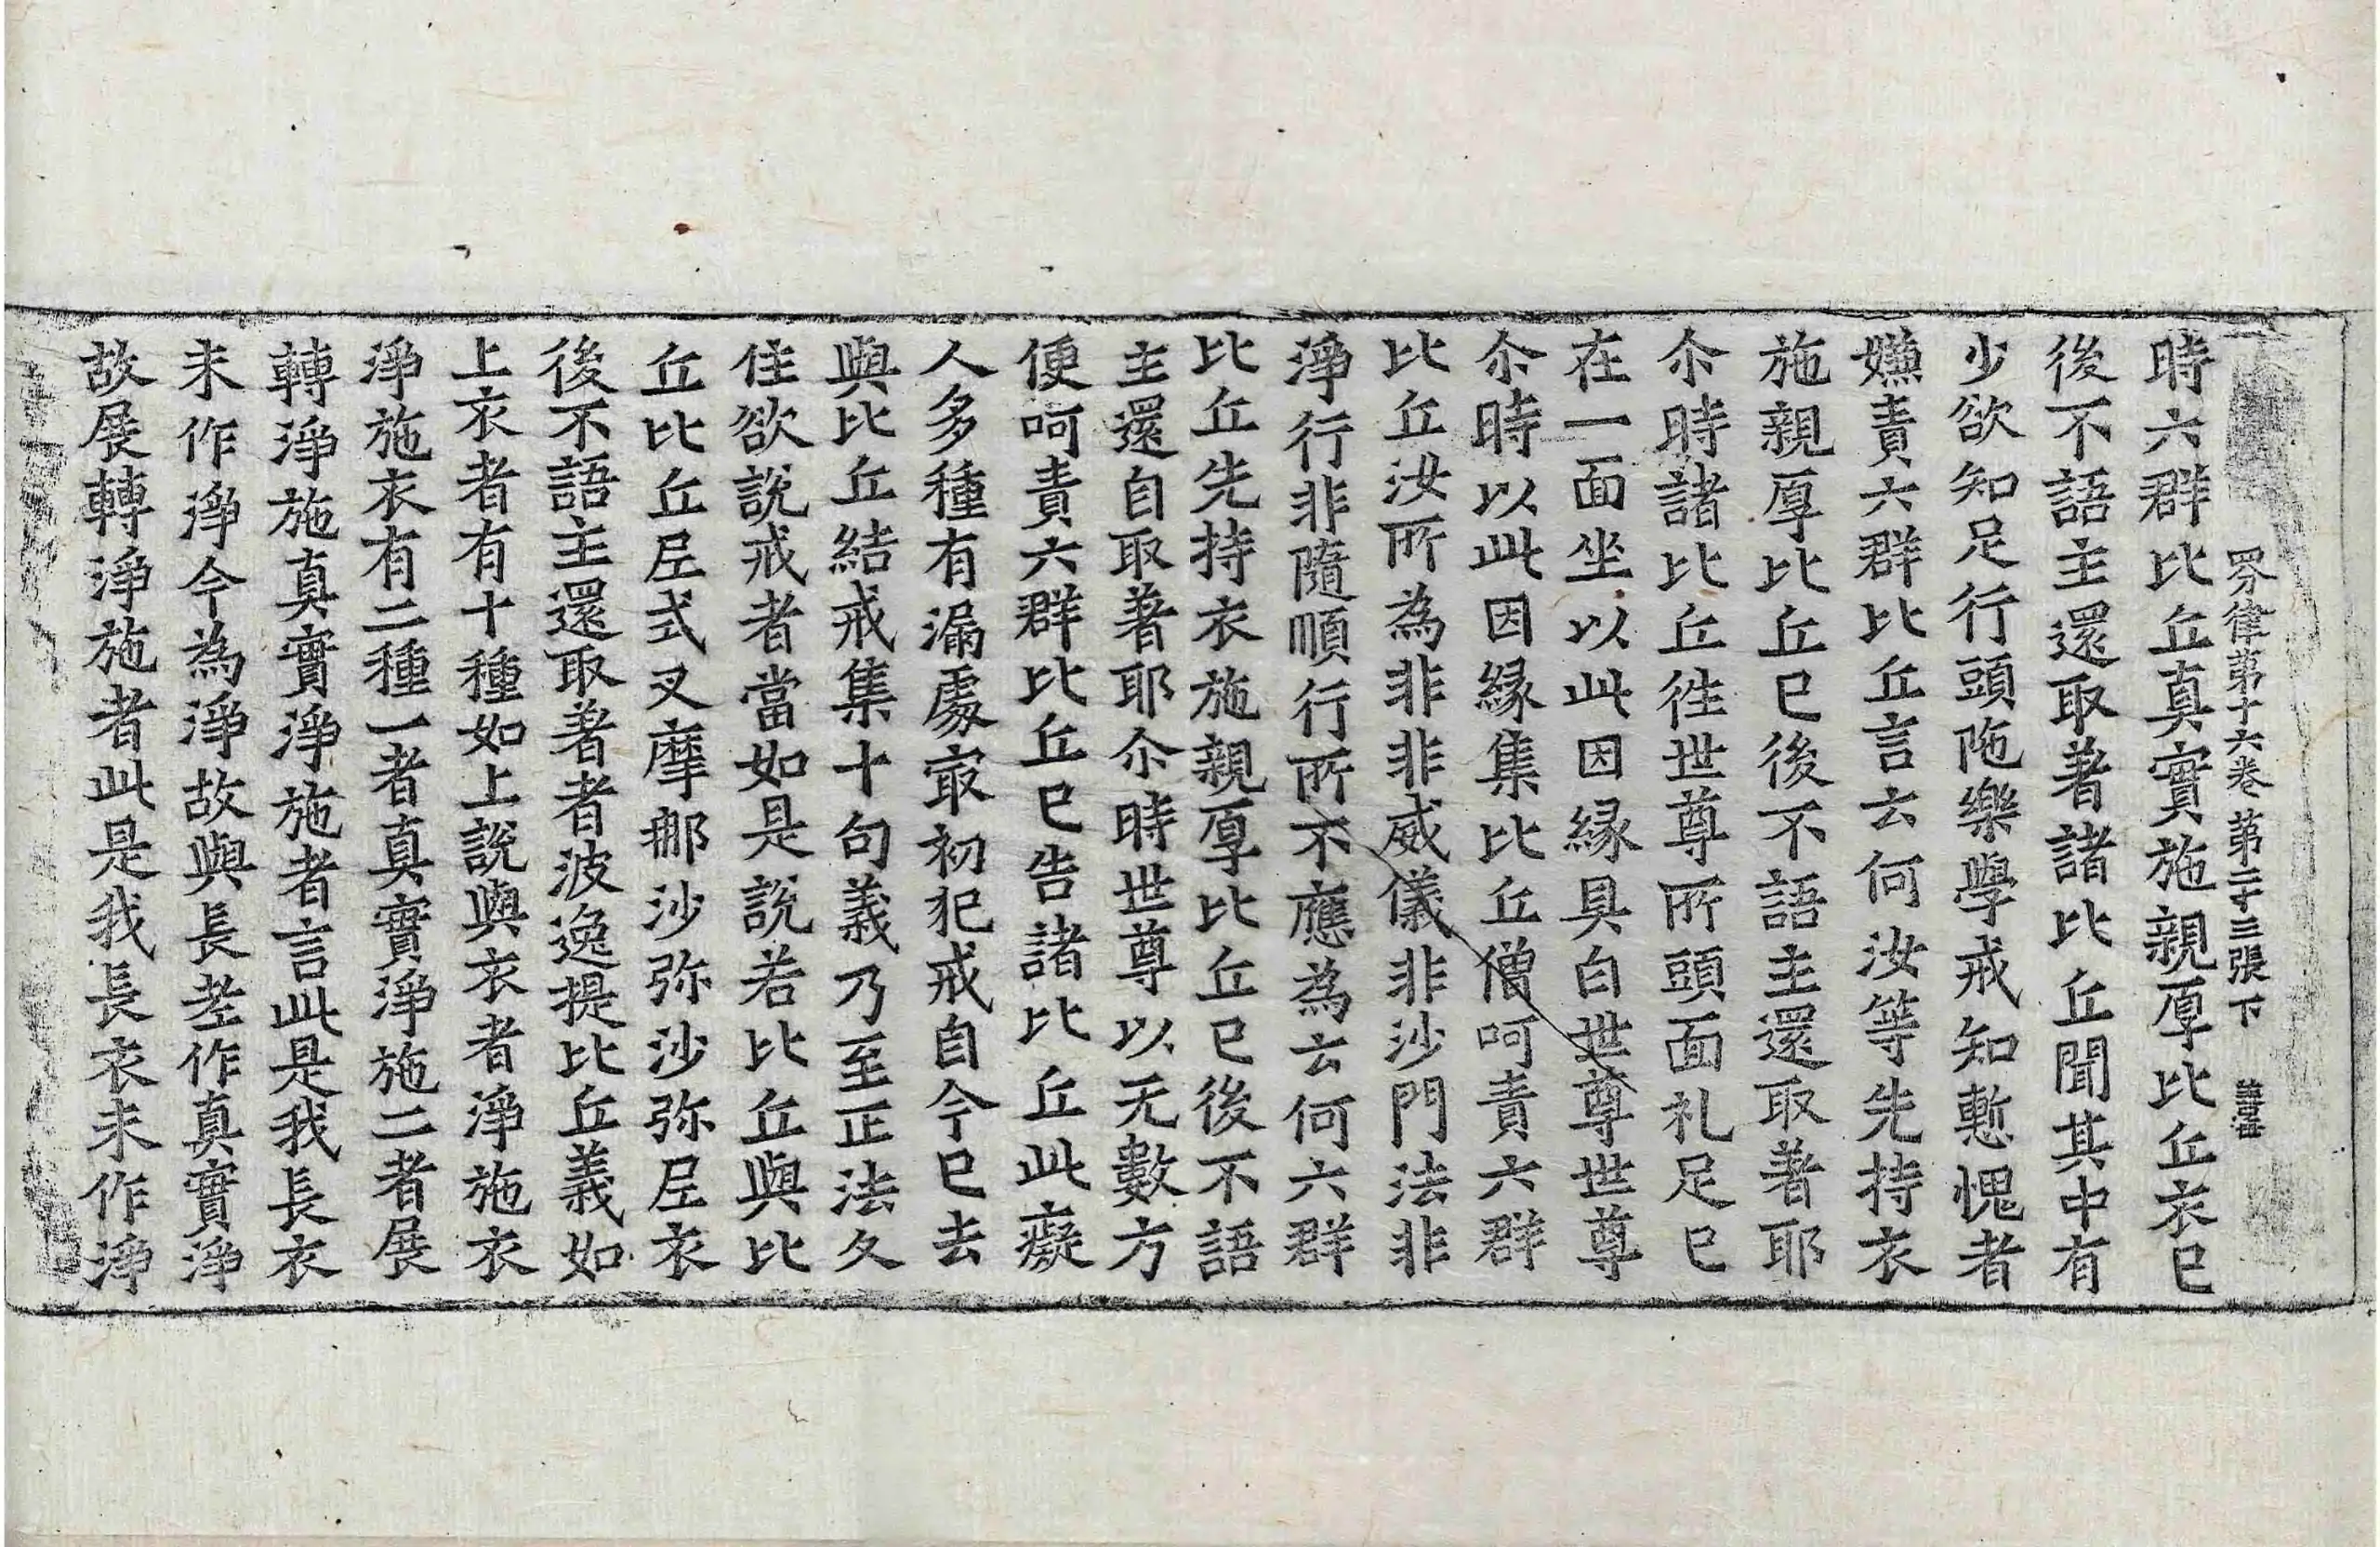 四分律第十六卷 第二十三張 下
時六群比丘真實施親厚比丘衣已
後不語主還取著諸比丘聞其中有
少欲知足行頭陁樂學戒知慙愧者
嫌責六群比丘言云何汝等先持衣
施親厚比丘已後不語主還取著耶
尒時諸比丘徃世尊所頭面礼足已
在一面坐以此因縁具白世尊世尊
尒時以此因縁集比丘僧呵責六群
比丘汝所為非非威儀非沙門法非
淨行非隨順行所不應為云何六群
比丘先持衣施親厚比丘已後不語
主還自取著耶尒時世尊以无數方
便呵責六群比丘已告諸比丘此癡
人多種有漏處㝡初犯戒自今已去
與比丘結戒集十句義乃至正法久
住欲說戒者當如是說若比丘與比
丘比丘尼式叉摩那沙弥沙弥尼衣
後不語主還取著者波逸提比丘義如
上衣者有十種如上說與衣者淨施衣
淨施衣有二種一者真實淨施二者展
轉淨施真實淨施者言此是我長衣
未作淨今為淨故與長老作真實淨
故展轉淨施者此是我長衣未作淨